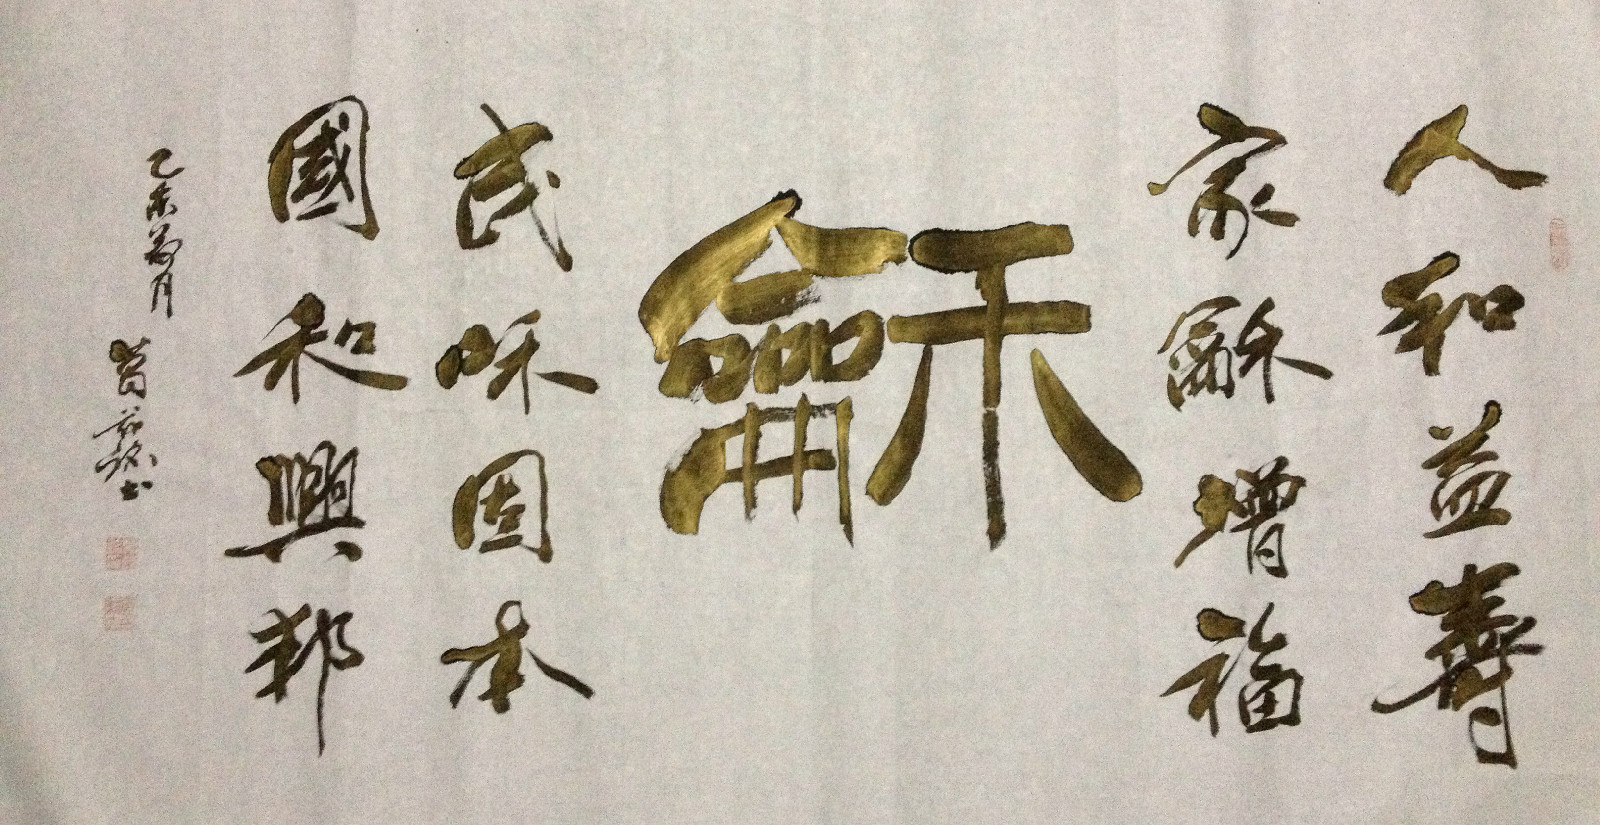 人和益壽
家龢增福
龢
民咊固本
國和興邦
乙未万月